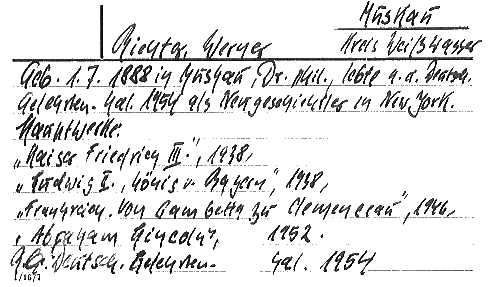 Muskau
Richter, Werner Kreis Weißwasser
Geb. 1.7. 1888 in Muskau, Dr. phil., lebte n. d. Deutsch.
Gelehrten-Kal. 1954 als Neugeschichtler in New York.
Hauptwerke:
„Kaiser Friedrich III.", 1938,
„Ludwig II., König v. Bayern", 1938,
„Frankreich. Von Gambetta zu Clemenceau", 1946,
„Abraham Lincoln", 1952.
Deutsch. Gelehrten- Kal. 1954